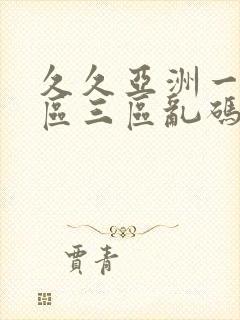 久久亞洲一
區三區亂碼
賈青